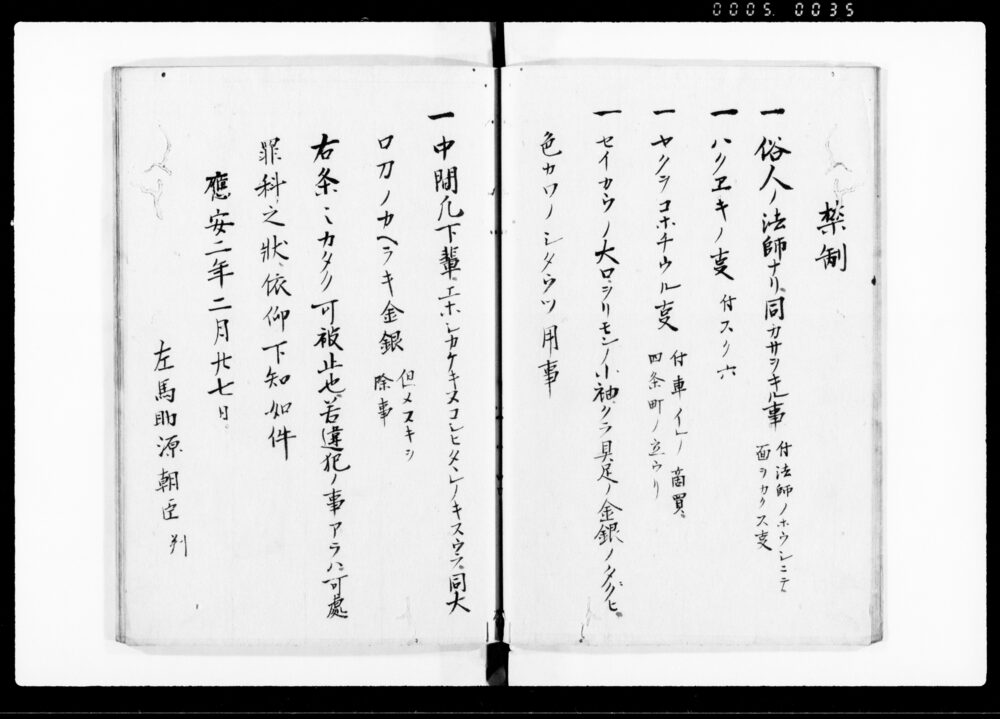 0005 0035
禁制
一俗人ノ法師ナリ、同カサヲキル事 付法師ノホウシニテ
面ヲカクス事
一ハクヱキノ事 付スク六
一ヤクラコホチウル事 付車イレノ商買、
四条町ノ立ウリ
一セイカウノ大口、ヲリモンノ小袖、クラ具足ノ金銀ノタクヒ、
色カワノシタウツ用事
一中間凡下輩、エホシカケキヌコシヒタヽレノキヌウラ、同大
口刀ノカヘラキ金銀 但メヌキヲ
除事
右条ミカタク可被止也、若違犯ノ事アラハ可處
罪科之状、依仰下知如件
應安二年二月廿七日
左馬助源朝臣判